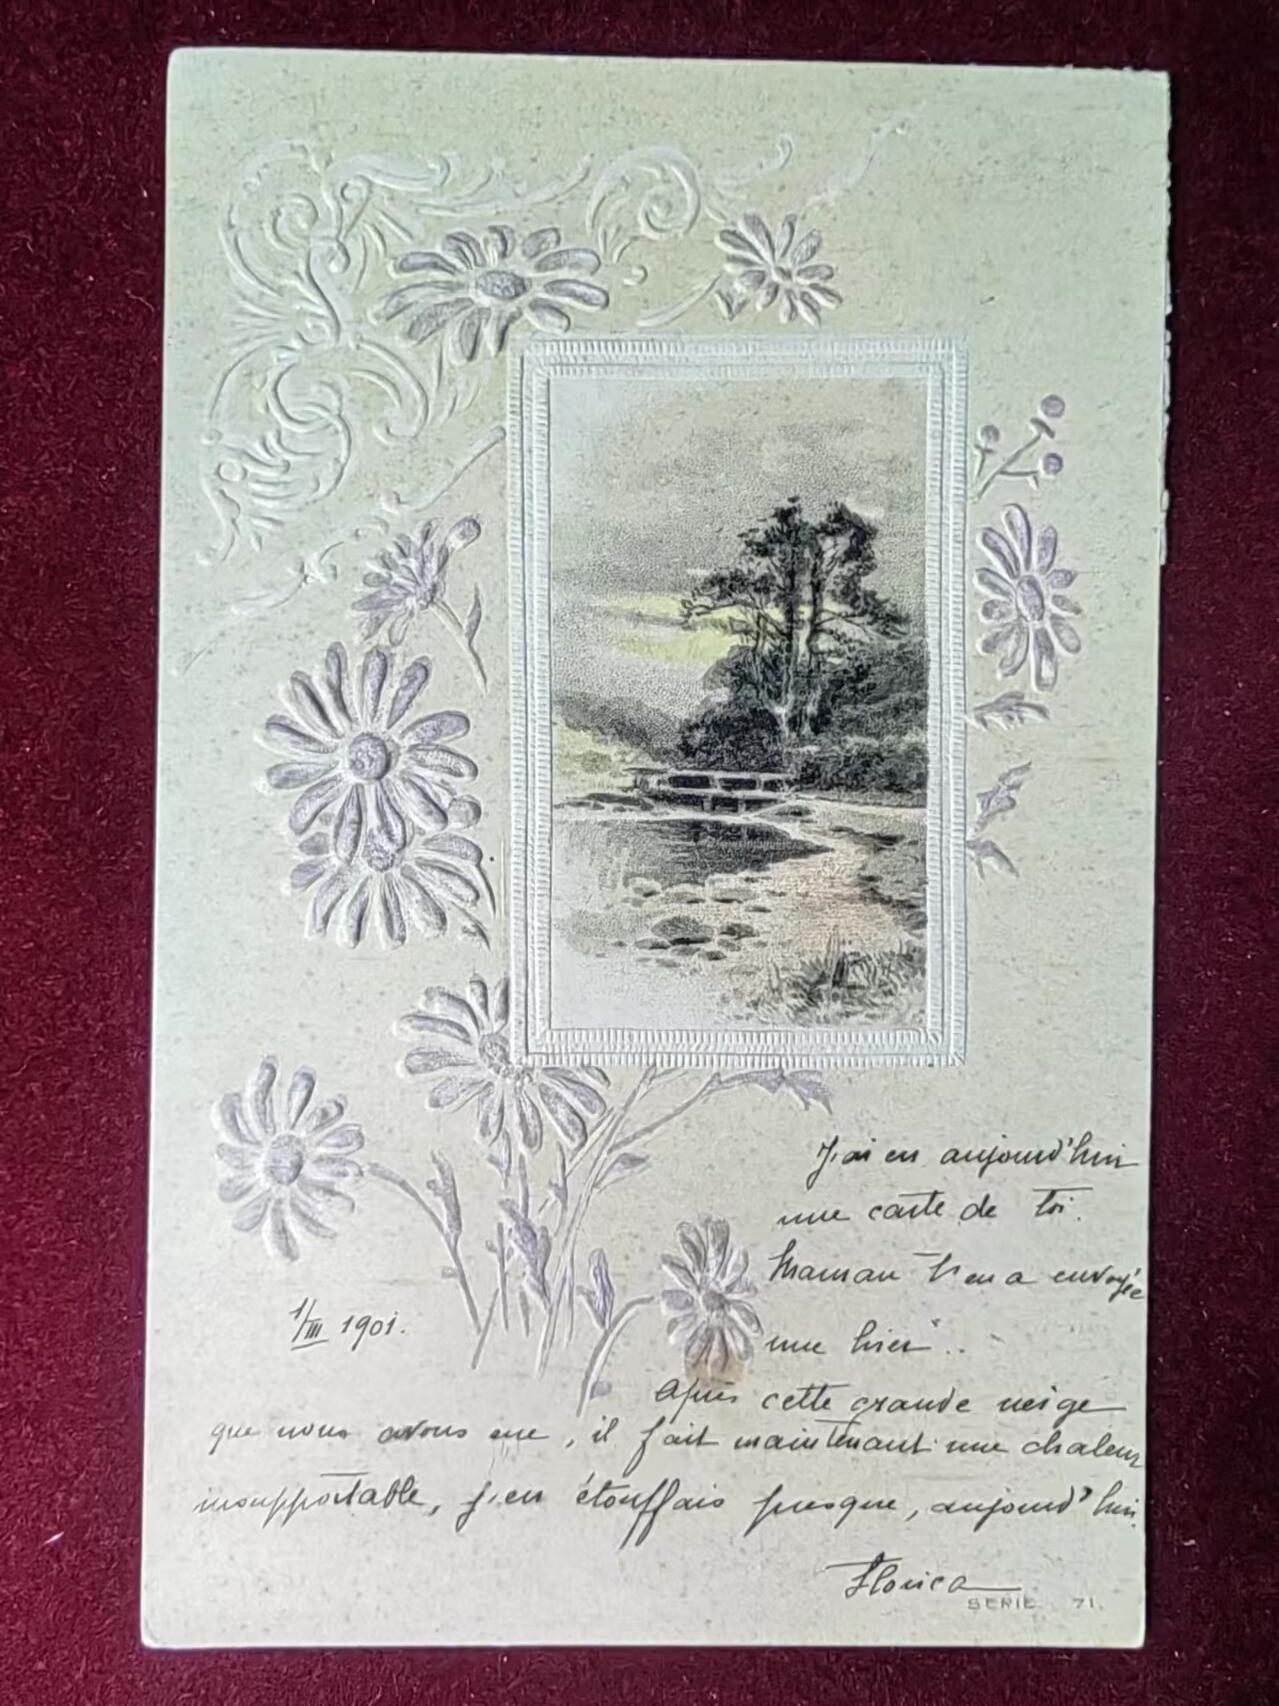 J'ai eu aujourd'hui
une carte de toi.
Maman t'en a envoyée
une hier..
1/III 1901.
Après cette grande neige
que nous avons eue, il fait maintenant une chaleur
insupportable, j'en étouffais presque, aujourd'hui.
Florica
SERIE 71.